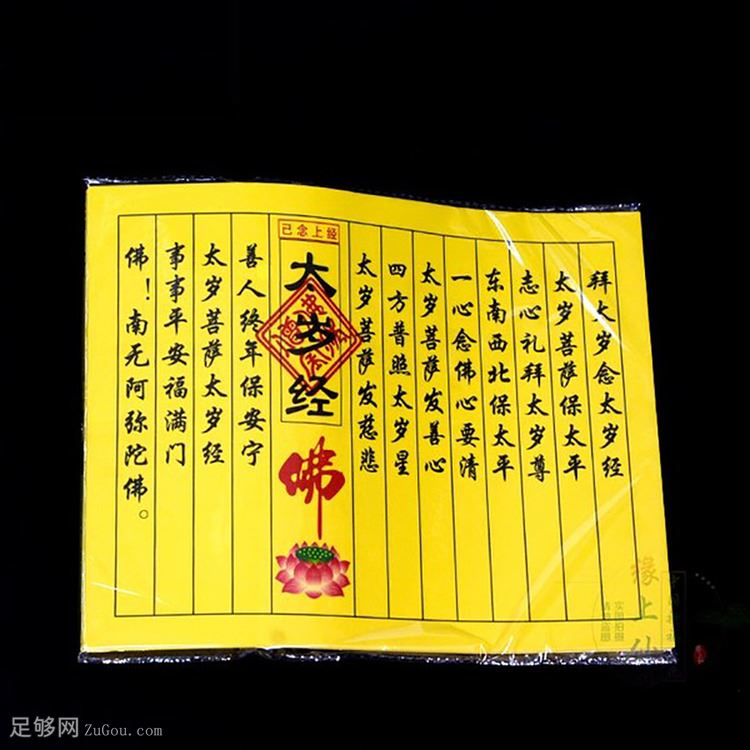 拜太岁念太岁经
太岁菩萨保太平
志心礼拜太岁尊
东南西北保太平
一心念佛心要清
太岁菩萨发善心
四方普照太岁星
太岁菩萨发慈悲
已念上经
太岁经
佛
善人终年保安宁
太岁菩萨太岁经
事事平安福满门
佛！南无阿弥陀佛。
缘上仙
实物拍摄
足够网 ZuGou.com